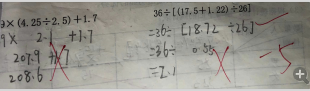 9×(4.25÷2.5)+1.7
9× 2.1 +1.7
207.9 +1.7
208.6
36÷[(17.5+1.22)÷26]
=36÷ [18.72 ÷26]
=36÷ 0.55
=2.1
-5